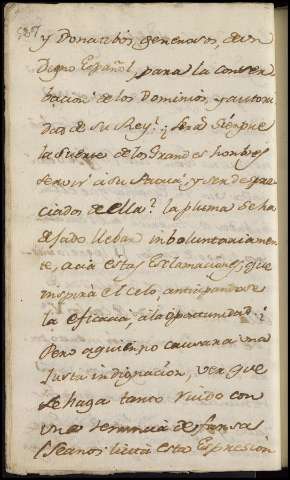 887
y Donatibos generosos, de un
Digno Español, para la conser
bacion de los Dominios, y autori
dad de su Rey? ¿Será siempre
la Suerte de los Grandes hombres
servir á su Patria, y ser despre
ciados de ella? la pluma se ha
dejado llebar imboluntariamen
te, acia estas Exclamaciones, que
inspira el celo, anticipandose
la eficacia, á la oportunidad;
Pero a quien no causara una
Justa indignacion, ver que
se haga tanto ruido con
una denuncia de farsas
(Seanos licita esta Expresion